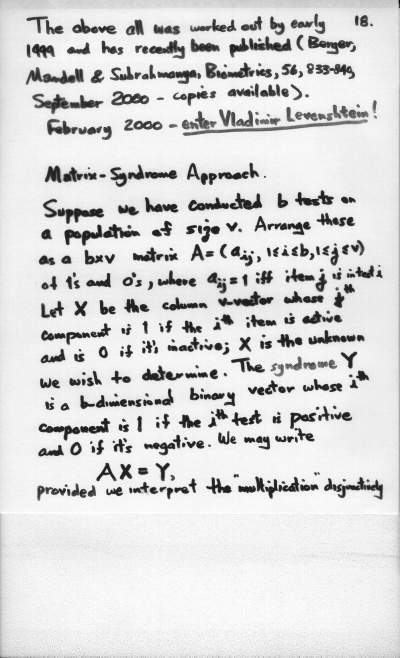 The above all was worked out by early 18.
1999 and has recently been published (Berger,
Mandell & Subrahmanya, Biometrics, 56, 833-840,
September 2000 - copies available).
February 2000 - enter Vladimir Levenshtein!
Matrix-Syndrome Approach.
Suppose we have conducted b tests on
a population of size v. Arrange these
as a b×v matrix A = (aij, 1≤i≤b, 1≤j≤v)
of 1's and 0's, where aij = 1 iff item j is in test i
Let X be the column v-vector whose jth
component is 1 if the ith item is active
and is 0 if it's inactive; X is the unknown
we wish to determine. The syndrome Y
is a b-dimensional binary vector whose ith
component is 1 if the ith test is positive
and 0 if it's negative. We may write
AX = Y,
provided we interpret the "multiplication" disjunctively